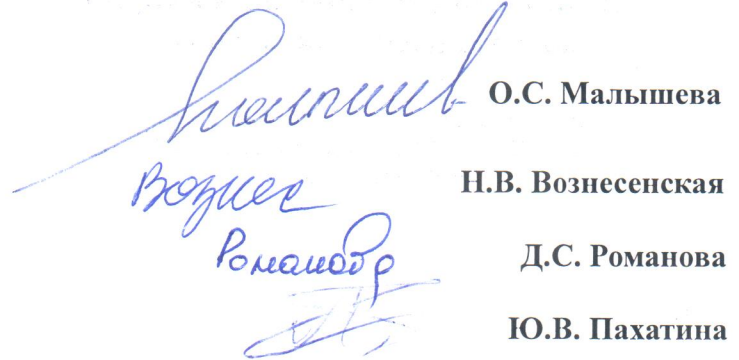 Малышев О.С. Малышева
Вознес Н.В. Вознесенская
Романова Д.С. Романова
Ю.В. Пахатина